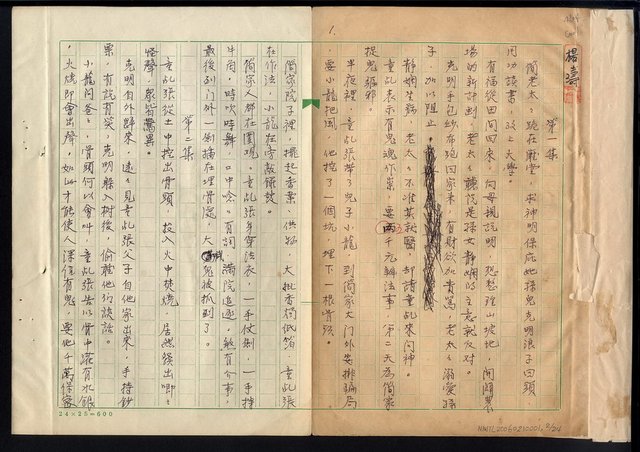 楊濤
1.
第一集
簡老太太跪在廳堂，求神明保庇她孫兒克明浪子回頭
用功讀書，考上大學。
有福從田間回來，向母親說明，想整理山坡地，開闢農
場的新計劃，老太太聽說是孫女靜嫻的主意就反對。
克明手包紗布跑回家來，有財欲加責罵，老太太溺愛孫
子，加以阻止。
靜嫻生病，老太太不准其就醫，却請童乩來問神。
童乩表示有鬼魂作祟，要兩千元辦法事，第二天為簡家
捉鬼驅邪。
半夜裡，童乩張帶了兒子小龍，到簡家大門外安排騙局
，要小龍把風，他挖了一個坑，埋下一根骨頭。
簡家院子裡，擺起香案、供品，大批香燭紙箔，童乩張
在作法，小龍在旁敲鑼鼓。
簡家人都在圍觀，童乩張身穿法衣，一手仗劍，一手持
牛角，時吹時舞，口中念念有詞，滿院追逐，煞有介事，
最後到門外一劍插在埋骨處，大喊鬼被抓到了。
第二集
童乩張從土中挖出骨頭，投入火中焚燒，居然發出唧唧
怪聲，眾皆驚異。
克明自外歸來，遠遠見童乩張父子自他家出來，手持鈔
票，有說有笑，克明躲入樹後，偷聽他們談話。
小龍問爸爸，骨頭何以會叫，童乩張告以骨中灌有水銀
，火燒即會出聲，如此才能使人深信有鬼，要他千萬保密
24×25=600
NMTL20050210001, 2/24